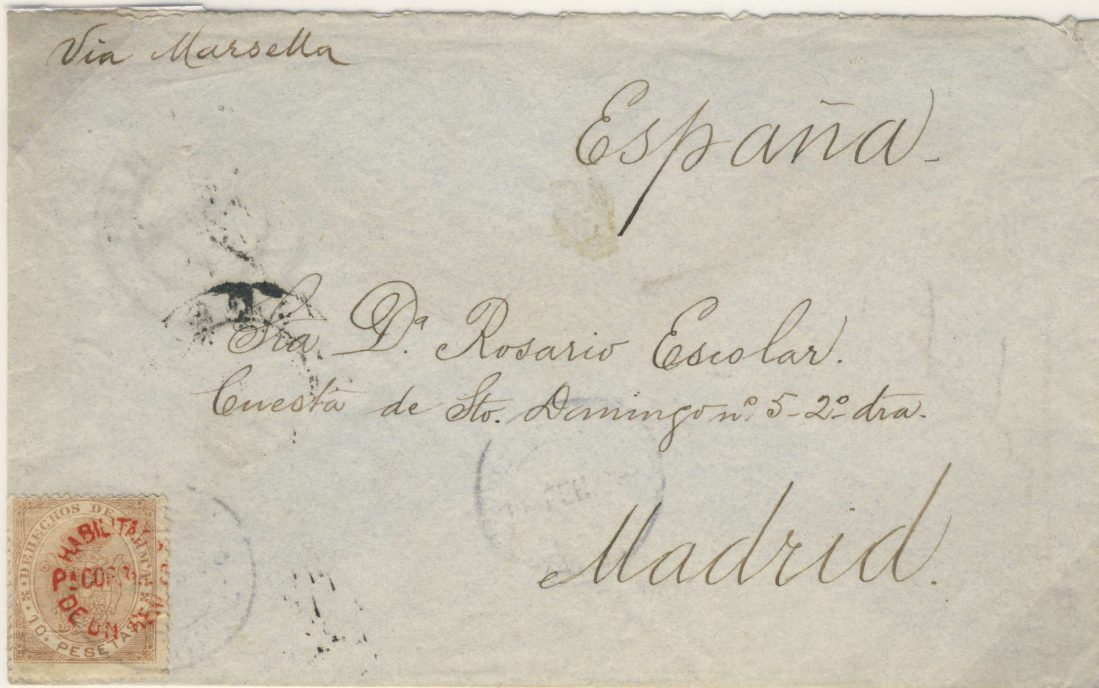 Via Marsella
España.
Sra D.ª Rosario Escolar.
Cuesta de Sto. Domingo nº 5-2º dra.
Madrid.
DERECHOS DE
HABILITA
DE UN
10 PESETAS